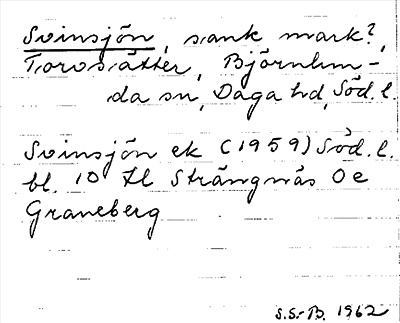 Svinsjön, sank mark?,
Torosätter, Björnlun-
da sn, Daga hd, Söd. l.
Svinsjön ek (1959) Söd. l.
bl. 10 Strängnäs Oe
Graneberg
S.S.-B. 1962